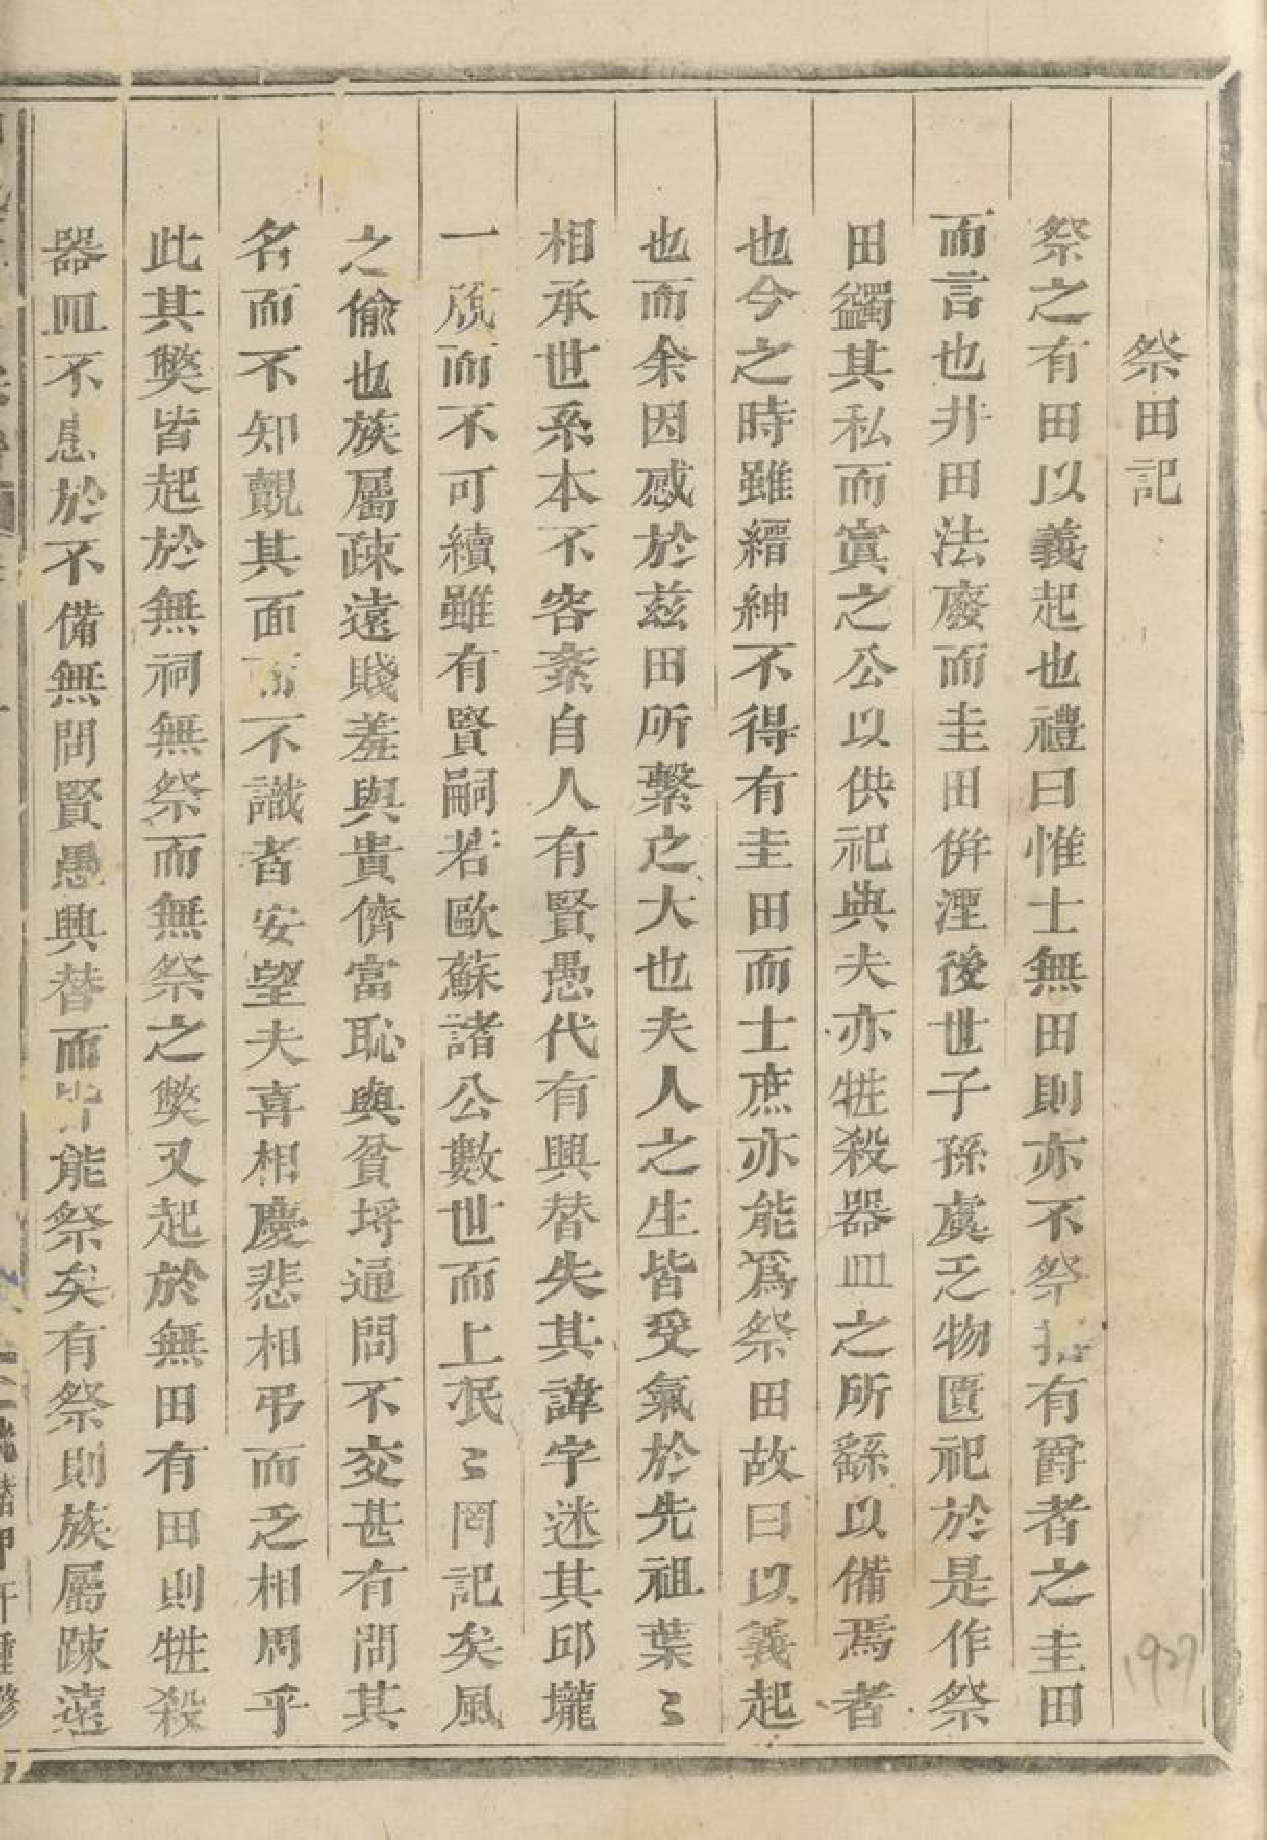 祭田記
祭之有田以義起也禮曰惟士無田則亦不祭指有爵者之圭田
而言也井田法廢而圭田倂湮後世子孫虞乏物匱祀於是作祭
田蠲其私而寘之公以供祀與夫亦牲殺器皿之所繇以備焉者
也今之時雖縉紳不得有圭田而士庶亦能爲祭田故曰以義起
也而余因感於茲田所繫之大也夫人之生皆受氣於先祖葉〻
相承世系本不容紊自人有賢愚代有興替失其諱字迷其邱壠
一脫而不可續雖有賢嗣若歐蘇諸公數世而上泯〻罔記矣風
之偷也族屬疎遠賤羞與貴儕富恥與貧埒通問不交甚有問其
名而不知覿其面而不識者安望夫喜相慶悲相弔而乏相周乎
此其獘皆起於無祠無祭而無祭之獘又起於無田有田則牲殺
器皿不患於不備無問賢愚興替而皆能祭矣有祭則族屬踈遠
1927